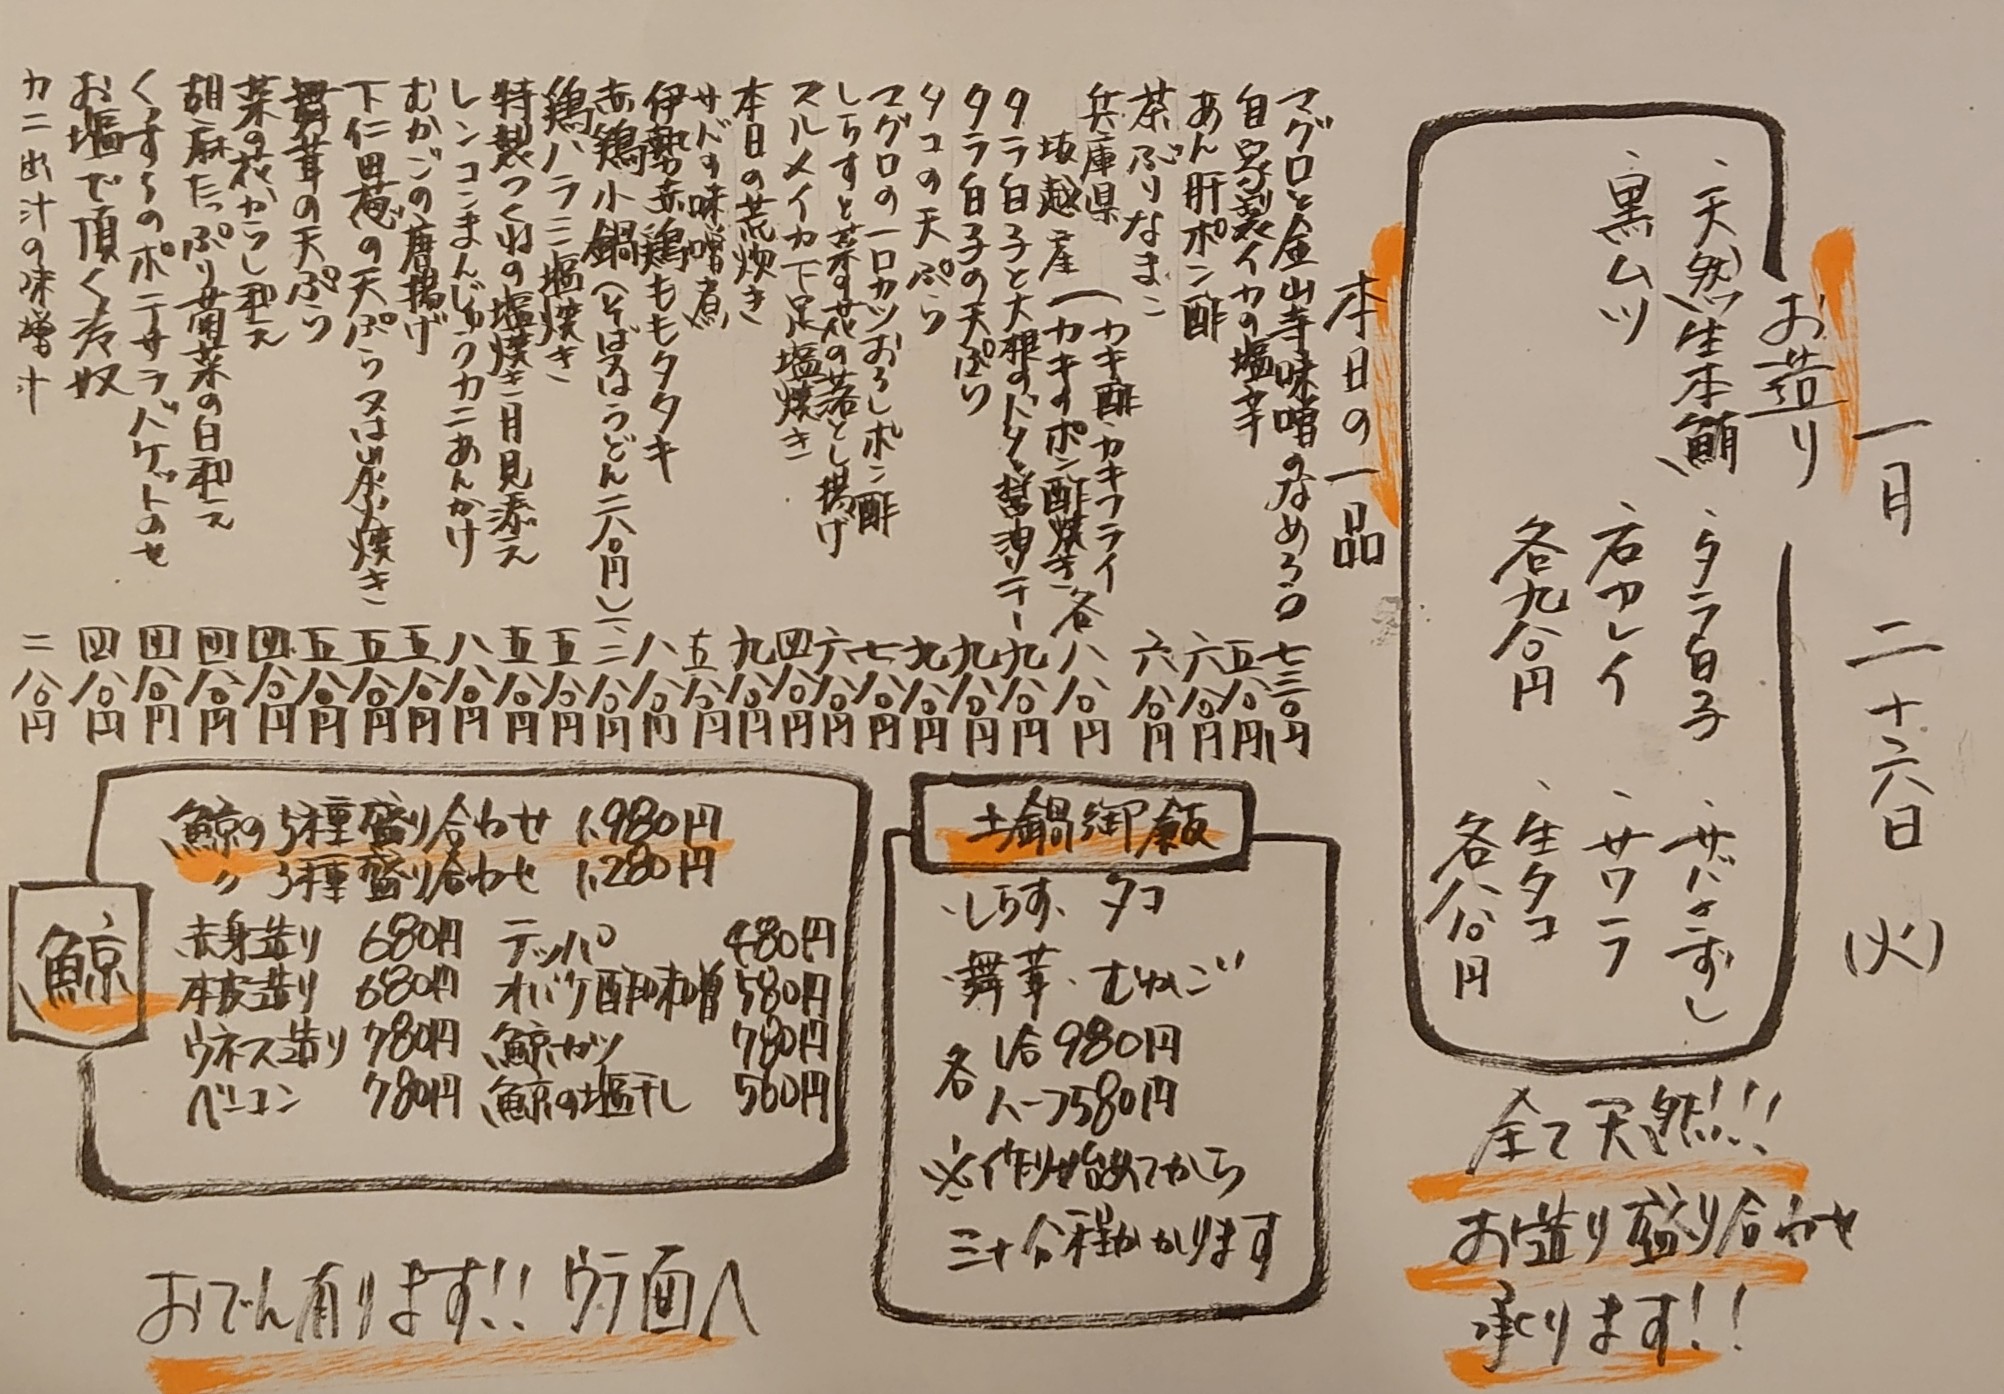 一月二十六日(火)
お造り
・天然生本鮪 ・タラ白子 ・サバきずし
・黒ムツ ・石カレイ ・サワラ
各九八〇円 ・生タコ
各八八〇円
全て天然!!!
お造り盛り合わせ
承ります!!
本日の一品
マグロと金山寺味噌のなめろう 七三〇円
自家製イカの塩辛 五八〇円
あん肝ポン酢 六八〇円
茶ぶりなまこ 六八〇円
兵庫県 坂越産 (カキ酢・カキフライ
(カキのポン酢焼き 各八八〇円
タラ白子と大根のバター醤油ソテー 九八〇円
タラ白子の天ぷら 九八〇円
タコの天ぷら 九八〇円
マグロの一口カツおろしポン酢 七八〇円
しらすと菜の花の落とし揚げ 六八〇円
スルメイカ下足塩焼き 四八〇円
本日の荒炊き 九八〇円
サバの味噌煮 五八〇円
伊勢赤鶏ももタタキ 八八〇円
赤鶏小鍋(そば又はうどん二八〇円) 一、二八〇円
鶏ハラミ塩焼き 五八〇円
特製つくねの塩焼き月見添え 五八〇円
レンコンまんじゅうカニあんかけ 八八〇円
むかごの唐揚げ 五八〇円
下仁田葱の天ぷら又は炭火焼き 五八〇円
舞茸の天ぷら 五八〇円
菜の花からし和え 四八〇円
胡麻たっぷり菊菜の白和え 四八〇円
くずし豆のポテサラバゲットのせ 四八〇円
お塩で頂く冷奴 四八〇円
カニ出汁の味噌汁 二八〇円
土鍋御飯
・しらす・タコ
・舞茸・むかご
各 1合980円
ハーフ580円
※作り始めてから
三十分程かかります
鯨
鯨の5種盛り合わせ 1,980円
〃 3種盛り合わせ 1,280円
赤身造り 680円 テッパ 480円
本皮造り 680円 オバケ酢味噌 580円
ウネス造り 780円 鯨カツ 780円
ベーコン 780円 鯨の塩干し 560円
おでん有ります!! ウラ面へ